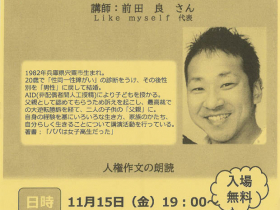 講師：前田 良 さん
Like myself 代表
1982年兵庫県宍粟市生まれ。
20歳で「性同一性障がい」の診断をうけ、その後性
別を「男性」に戻して結婚。
AID(非配偶者間人工授精)により子どもを授かる。
父親として認めてもらうため訴えを起こし、最高裁で
の大逆転勝訴を経て、二人の子供の「父親」に。
自身の経験を基にいろいろな生き方、家族のかたち、
自分らしく生きることについて講演活動を行っている。
著書：「パパは女子高生だった」
人権作文の朗読
入場
無料
日時
11月15日（金）19：00～